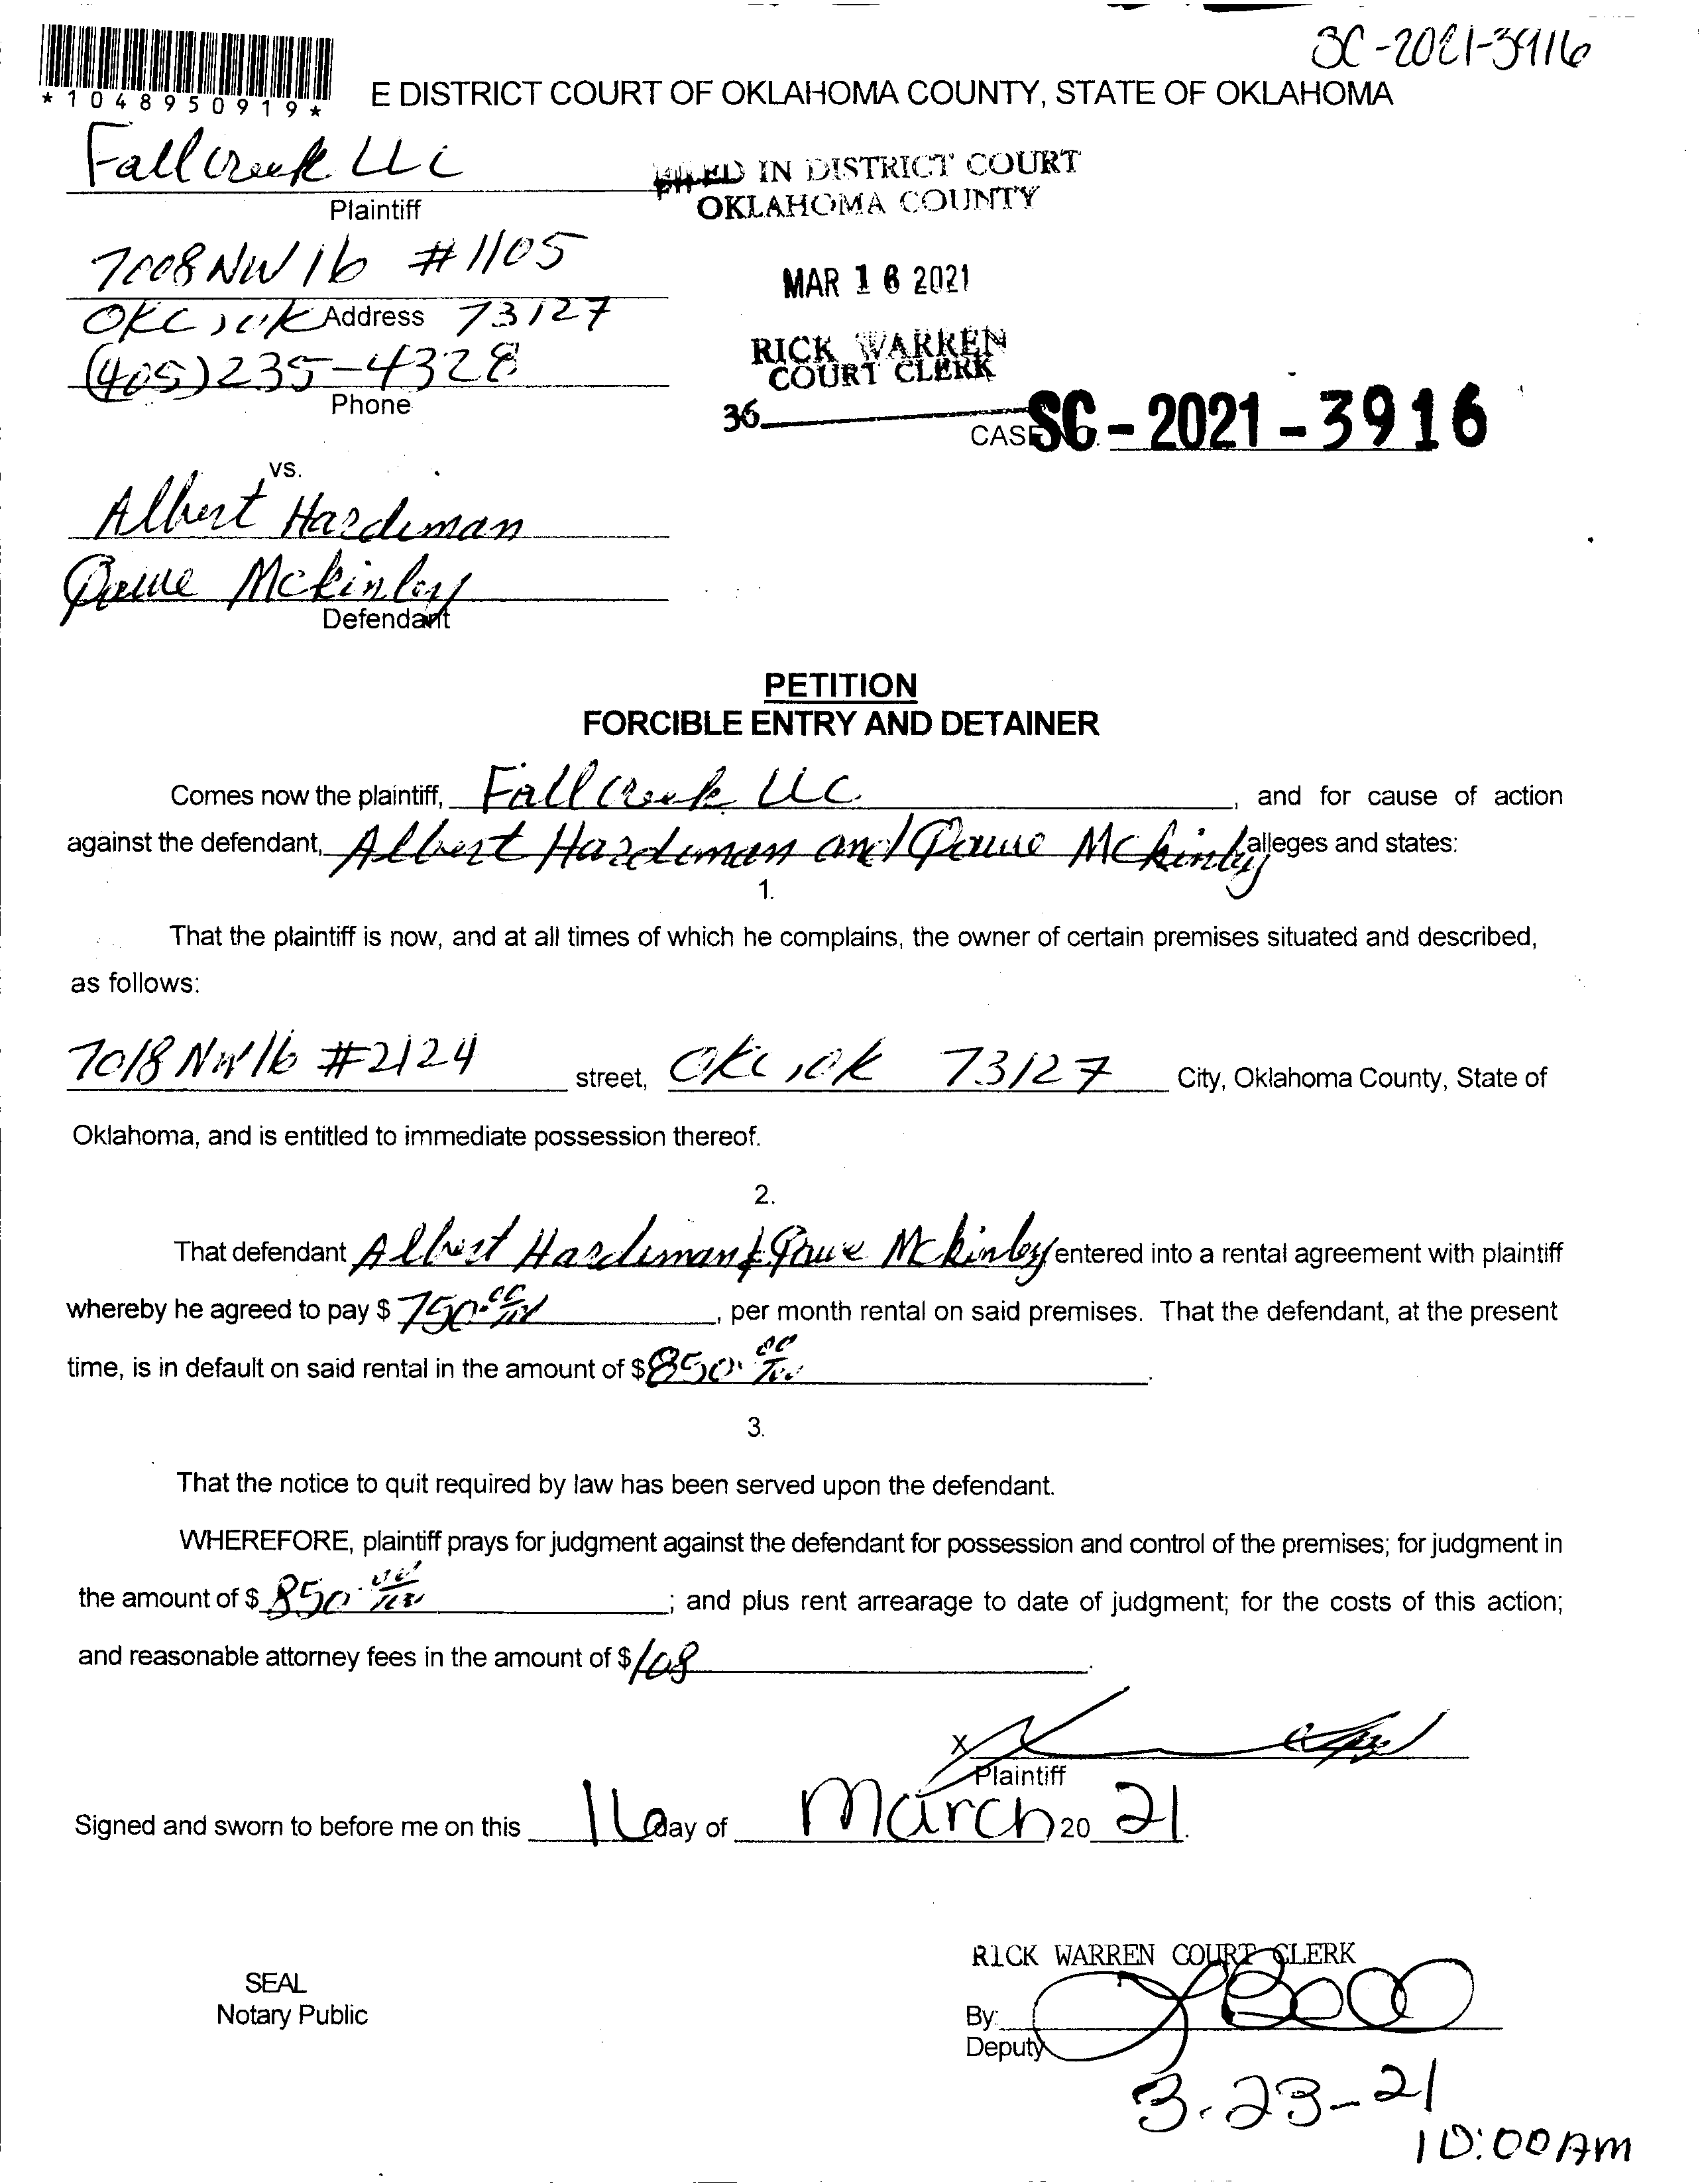 SC-2021-3916
*1048950919*
E DISTRICT COURT OF OKLAHOMA COUNTY, STATE OF OKLAHOMA
Fall Creek LLC
Plaintiff
FILED IN DISTRICT COURT
OKLAHOMA COUNTY
7008 NW 16 #1105
MAR 16 2021
OKC, OK Address 73127
RICK WARREN
COURT CLERK
(405) 235-4328
Phone
36
CASE SC-2021-3916
vs.
Albert Hardiman
Mckinley
Defendant
PETITION
FORCIBLE ENTRY AND DETAINER
Comes now the plaintiff, Fall Creek LLC, and for cause of action
against the defendant, Albert Hardiman and Mckinley alleges and states:
1.
That the plaintiff is now, and at all times of which he complains, the owner of certain premises situated and described,
as follows:
7018 NW 16 #2124 street, OKC, OK 73127 City, Oklahoma County, State of
Oklahoma, and is entitled to immediate possession thereof.
2.
That defendant Albert Hardiman & Mckinley entered into a rental agreement with plaintiff
whereby he agreed to pay $ 750.00/100, per month rental on said premises. That the defendant, at the present
time, is in default on said rental in the amount of $ 850.00/100.
3.
That the notice to quit required by law has been served upon the defendant.
WHEREFORE, plaintiff prays for judgment against the defendant for possession and control of the premises; for judgment in
the amount of $ 850.00/100; and plus rent arrearage to date of judgment; for the costs of this action;
and reasonable attorney fees in the amount of $ 108.
X
Plaintiff
Signed and sworn to before me on this 16 day of March 20 21.
RICK WARREN COURT CLERK
SEAL
Notary Public
By:
Deputy
3-23-21
10:00AM